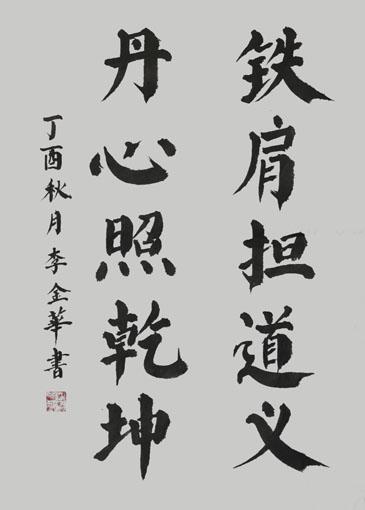 铁肩担道义
丹心照乾坤
丁酉秋月李金華書